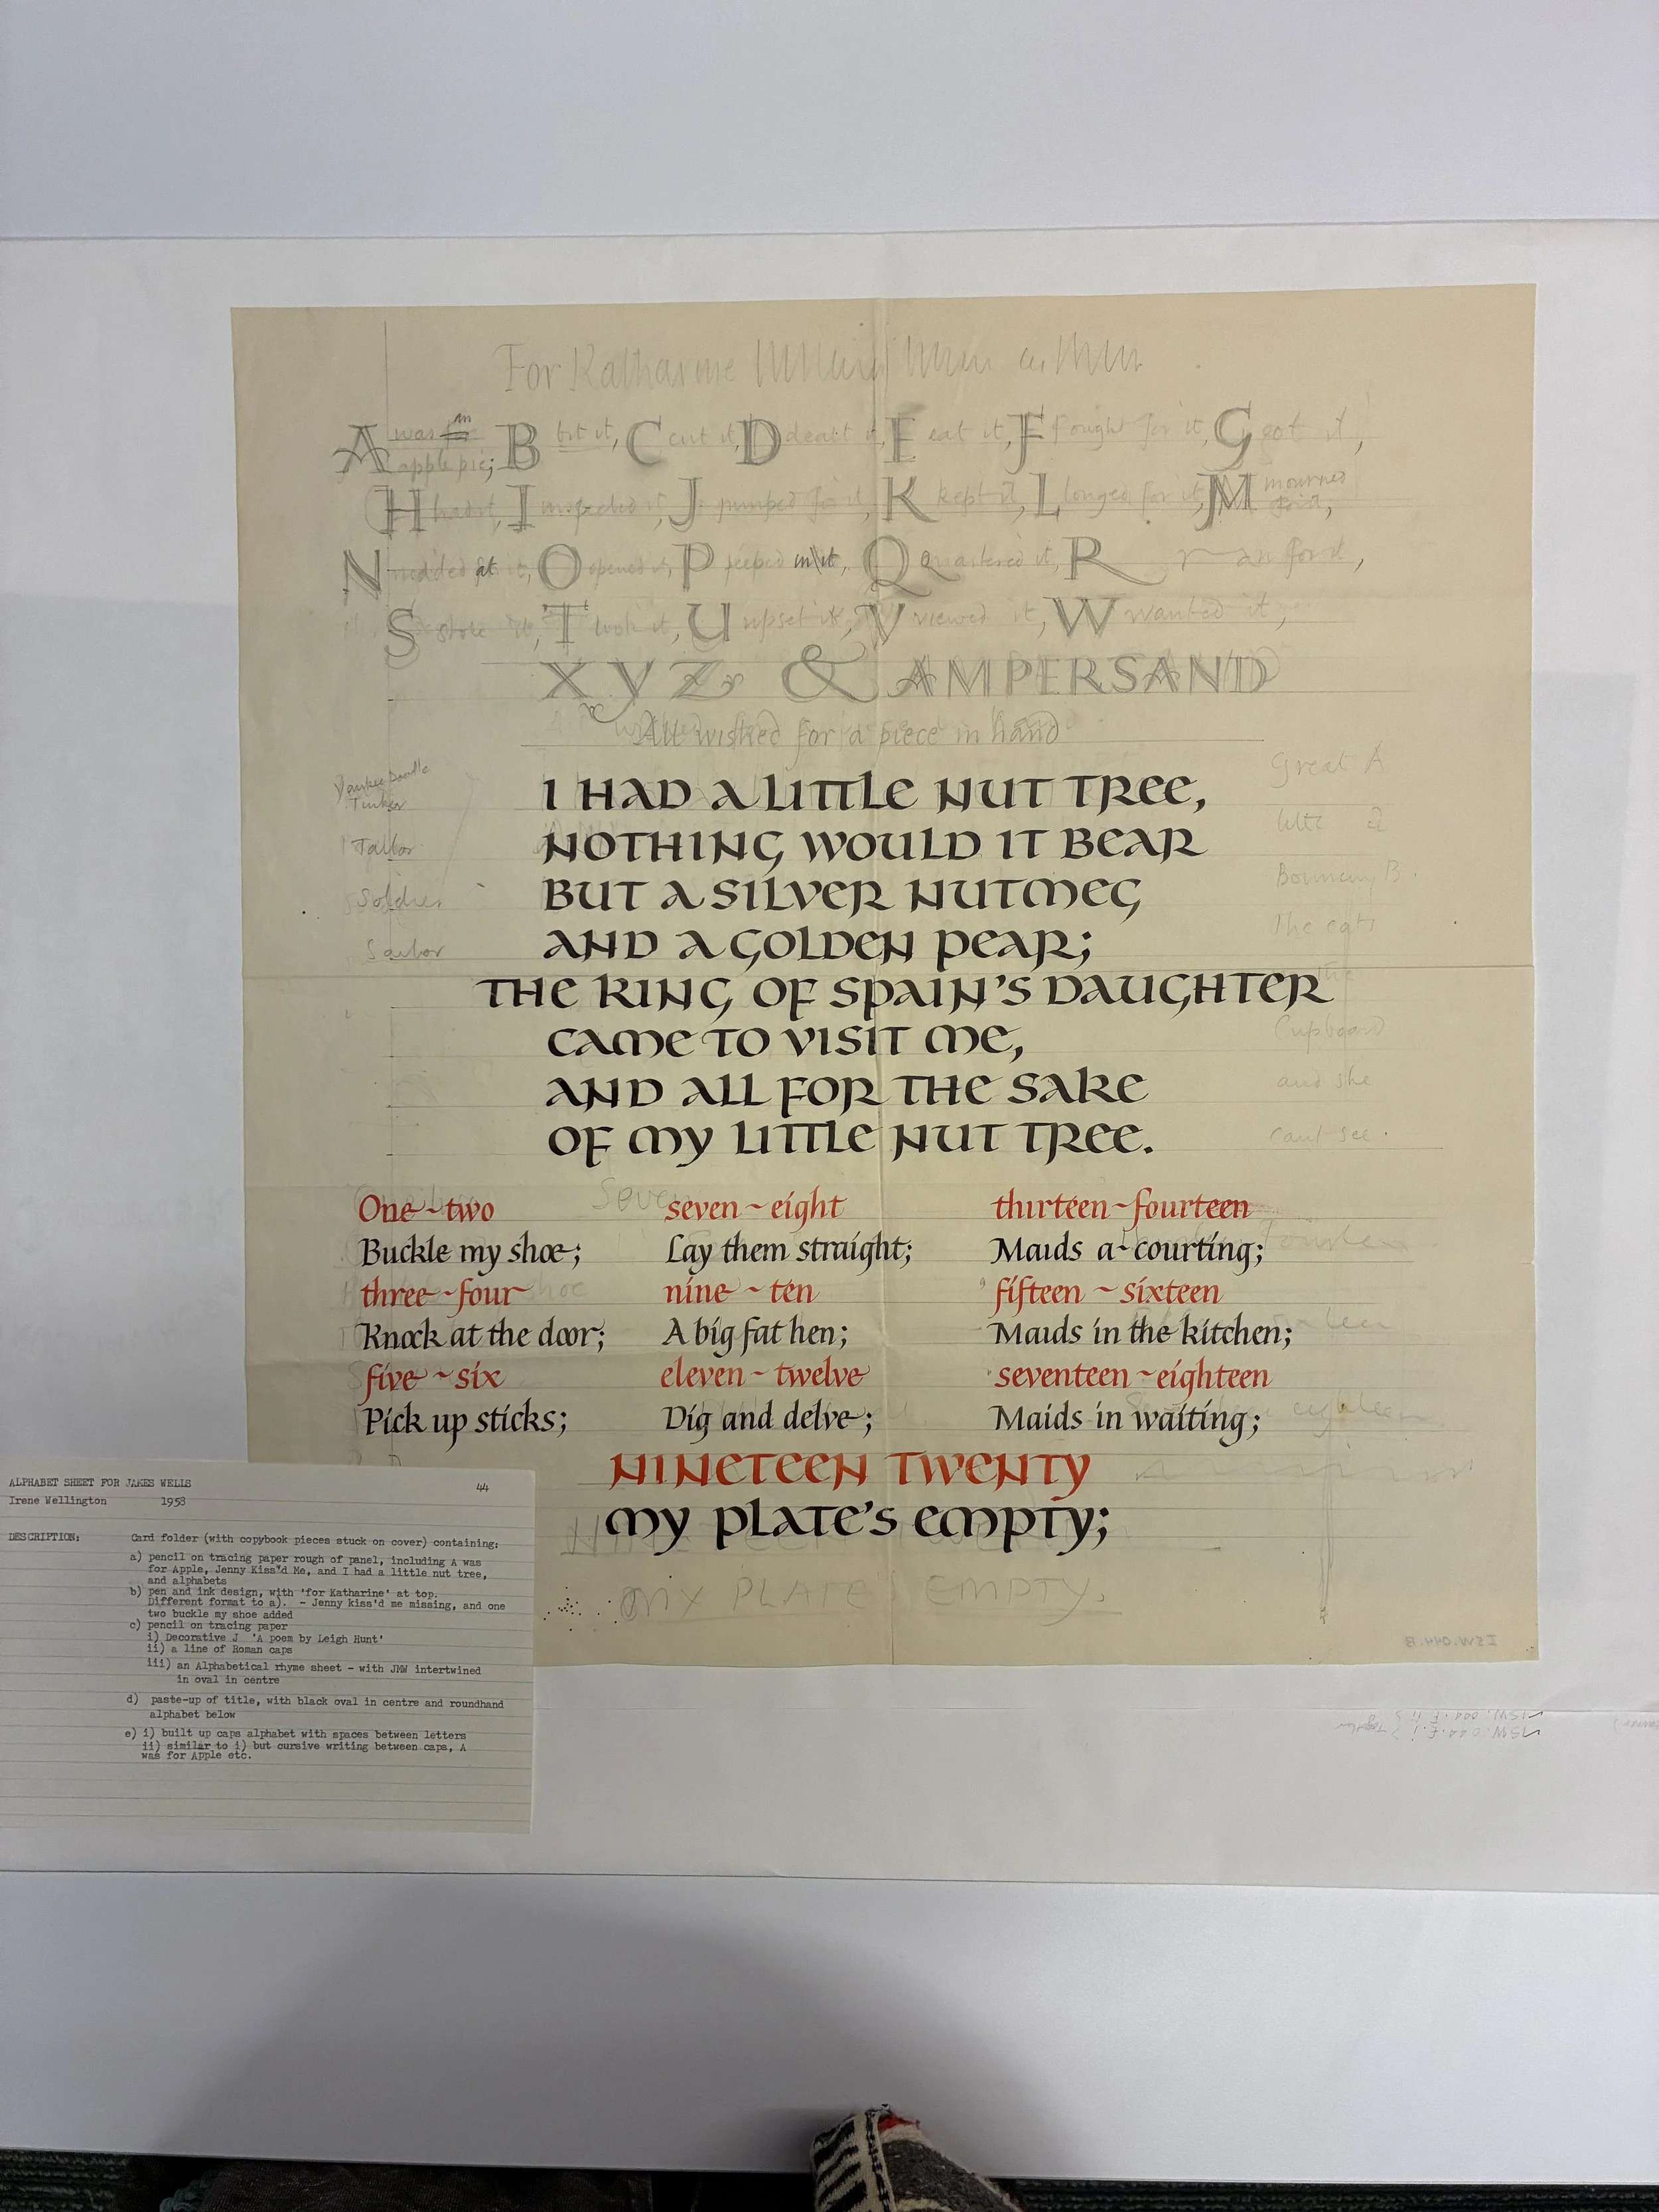 For Katharine
A was an B bit it, C cut it, D dealt it, E eat it, F fought for it, G got it,
apple pie;
H had it, I inspected it, J jumped for it, K kept it, L longed for it, M mourned
for it,
N nodded at it, O opened it, P peeped in it, Q Quartered it, R ran for it,
S stole it, T took it, U upset it, V viewed it, W wanted it,
X Y Z & AMPERSAND
All wished for a piece in hand
Yankee Doodle
Tinker
Tailor
Soldier
Sailor
I HAD A LITTLE NUT TREE,
NOTHING WOULD IT BEAR
BUT A SILVER NUTMEG
AND A GOLDEN PEAR;
THE KING OF SPAIN'S DAUGHTER
CAME TO VISIT ME,
AND ALL FOR THE SAKE
OF MY LITTLE NUT TREE.
Great A
little a
Bouncing B
The cat's
in the
Cupboard
and she
can't see.
One~two
Buckle my shoe;
three~four
Knock at the door;
five~six
Pick up sticks;
Seven
seven~eight
Lay them straight;
nine~ten
A big fat hen;
eleven~twelve
Dig and delve;
thirteen~fourteen
Maids a-courting;
fifteen~sixteen
Maids in the kitchen;
seventeen~eighteen
Maids in waiting;
NINETEEN TWENTY
MY PLATE'S EMPTY;
MY PLATE'S EMPTY.
ISW.044.B
ALPHABET SHEET FOR JAKES WELLS 44
Irene Wellington 1958
DESCRIPTION: Card folder (with copybook pieces stuck on cover) containing:
a) pencil on tracing paper rough of panel, including A was
for Apple, Jenny Kiss'd Me, and I had a little nut tree,
and alphabets
b) pen and ink design, with 'for Katharine' at top.
Different format to a). - Jenny kiss'd me missing, and one
two buckle my shoe added
c) pencil on tracing paper
i) Decorative J 'A poem by Leigh Hunt'
ii) a line of Roman caps
iii) an Alphabetical rhyme sheet - with JMW intertwined
in oval in centre
d) paste-up of title, with black oval in centre and roundhand
alphabet below
e) i) built up caps alphabet with spaces between letters
ii) similar to i) but cursive writing between caps, A
was for Apple etc.